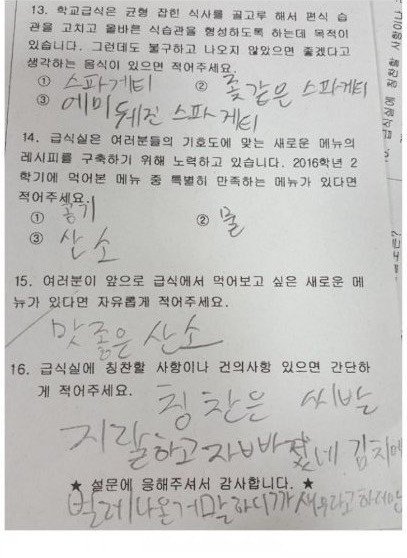 13. 학교급식은 균형 잡힌 식사를 골고루 해서 편식 습
관을 고치고 올바른 식습관을 형성하도록 하는데 목적이
있습니다. 그런데도 불구하고 나오지 않았으면 좋겠다고
생각하는 음식이 있으면 적어주세요.
① 스파게티 ② 좆같은 스파게티
③ 에미 뒈진 스파게티
14. 급식실은 여러분들의 기호도에 맞는 새로운 메뉴의
레시피를 구축하기 위해 노력하고 있습니다. 2016학년 2
학기에 먹어본 메뉴 중 특별히 만족하는 메뉴가 있다면
적어주세요.
① 공기 ② 물
③ 산소
15. 여러분이 앞으로 급식에서 먹어보고 싶은 새로운 메
뉴가 있다면 자유롭게 적어주세요.
맛좋은 산소
16. 급식실에 칭찬할 사항이나 건의사항 있으면 간단하
게 적어주세요.
칭찬은 씨발
지랄하고 자빠졌네 김치에
★ 설문에 응해주셔서 감사합니다. ★
벌레 나온거 말하니까 새우라고 하더만